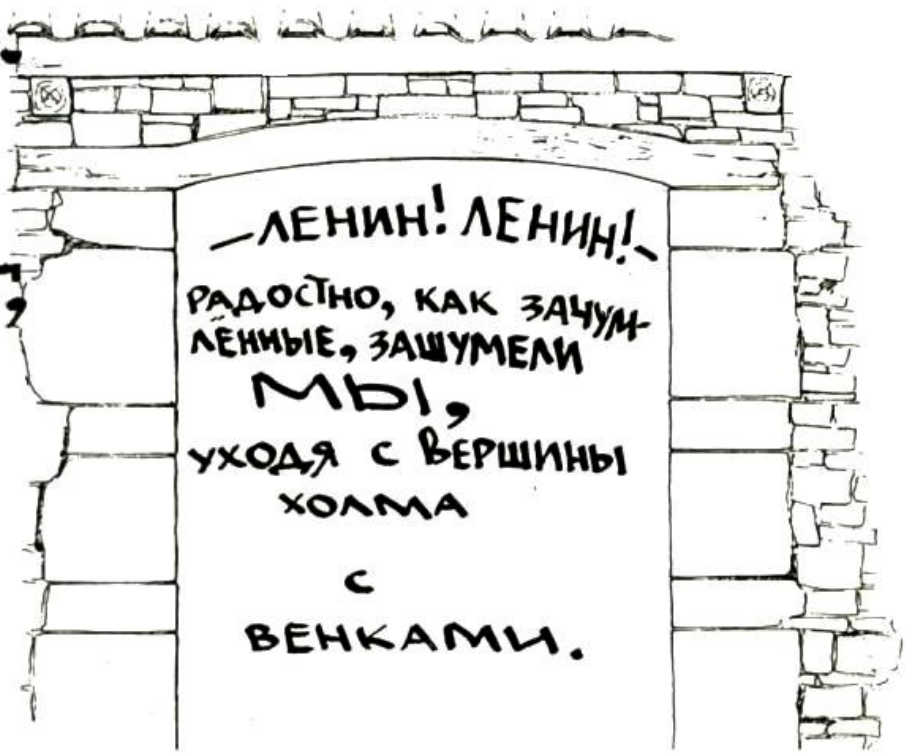 —ЛЕНИН! ЛЕНИН!-
РАДОСТНО, КАК ЗАЧУМ-
ЛЁННЫЕ, ЗАШУМЕЛИ
МЫ,
УХОДЯ С ВЕРШИНЫ
ХОЛМА
С
ВЕНКАМИ.